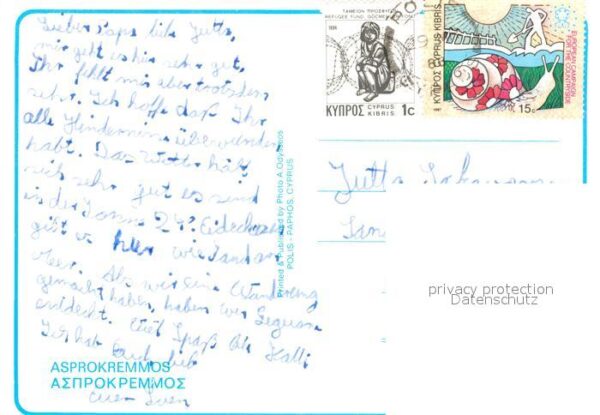 Lieber Papa liebe Jutta,
mir geht es hier sehr gut,
Ihr fehlt mir aber trotzdem
sehr. Ich hoffe daß Ihr
alle Hindernisse überwunden
habt. Das Wetter hält
sich sehr gut es sind
in der Sonne 24° Eidechsen
gibt es hier wie Sand am
Meer. Als wir eine Wanderung
gemacht haben, haben wir
entdeckt. Viel Spaß
Ich hab Euch lieb
euer Sven
ASPROKREMMOS
ΑΣΠΡΟΚΡΕΜΜΟΣ
Printed & Published by Photo A. Odysseos
POLIS - PAPHOS, CYPRUS
ΤΑΜΕΙΟΝ ΠΡΟΣΦΥΓΩΝ
REFUGEE FUND GÖÇMEN
ΚΥΠΡΟΣ CYPRUS KIBRIS 1c
ΚΥΠΡΟΣ CYPRUS KIBRIS
EUROPEAN CAMPAIGN
FOR THE COUNTRYSIDE
15c
Jutta
privacy protection
Datenschutz